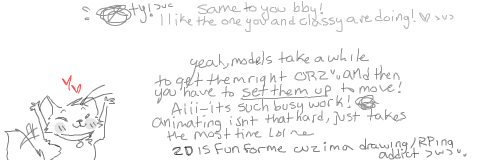 ty! >u<
Same to you bby!
I like the one you and classy are doing! ♡ >u>
yeah, models take a while
to get them right ORZ vv and then
you have to set them up to move!
Aiii-its such busy work!
animating isnt that hard, just takes
the most time lol me
2D is fun for me cuz im a drawing/RPing
addict >w>vv